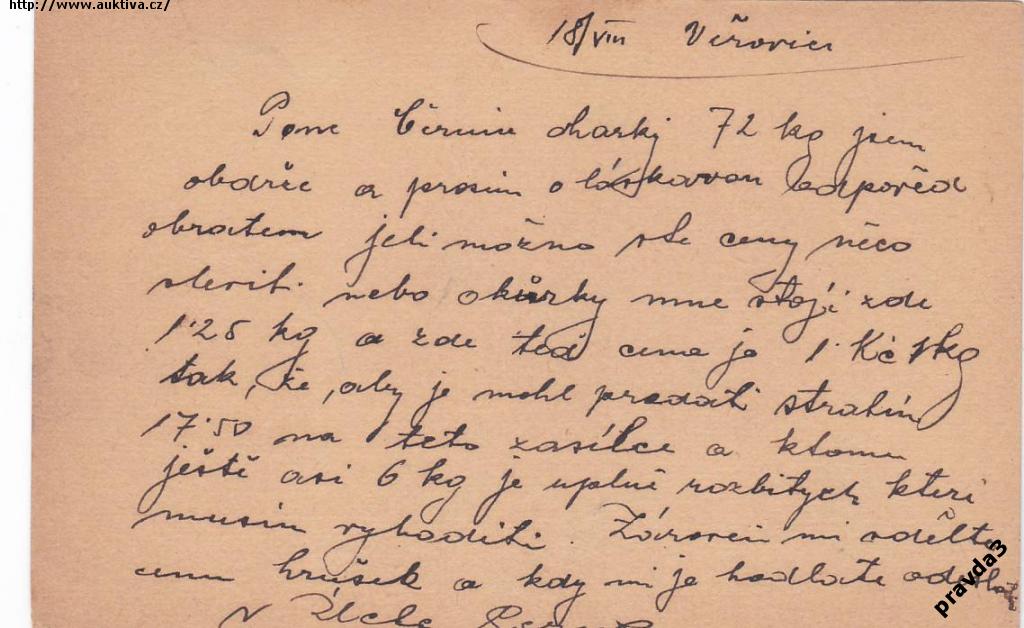 http://www.auktiva.cz/
18/VIII Veřovice
Pane okurky 72 kg jsem
obdržel a prosim o láskavou odpověd
obratem jeli možno ste ceny něco
slevit. nebo okůrky mne stojí zde
1·25 kg a zde ted cena je 1 Kč 1kg
tak, že, aby je mohl prodati stratím
17·50 na teto zasílce a ktomu
ještě asi 6 kg je uplně rozbitych kteri
musim vyhoditi. Zároveň mi sdělte
cenu hrušek a kdy mi je hodlate
V Úctě
pravda3